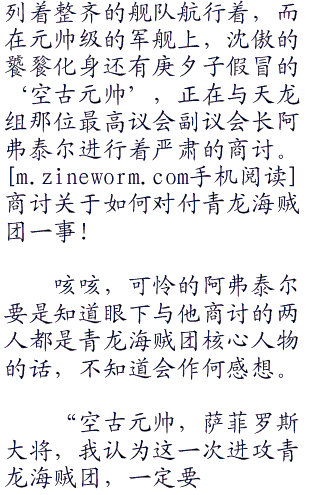 列着整齐的舰队航行着，而
在元帅级的军舰上，沈傲的
饕餮化身还有庚夕子假冒的
‘空古元帅’，正在与天龙
组那位最高议会副议会长阿
弗泰尔进行着严肃的商讨。
[m.zineworm.com手机阅读]
商讨关于如何对付青龙海贼
团一事！
咳咳，可怜的阿弗泰尔
要是知道眼下与他商讨的两
人都是青龙海贼团核心人物
的话，不知道会作何感想。
“空古元帅，萨菲罗斯
大将，我认为这一次进攻青
龙海贼团，一定要